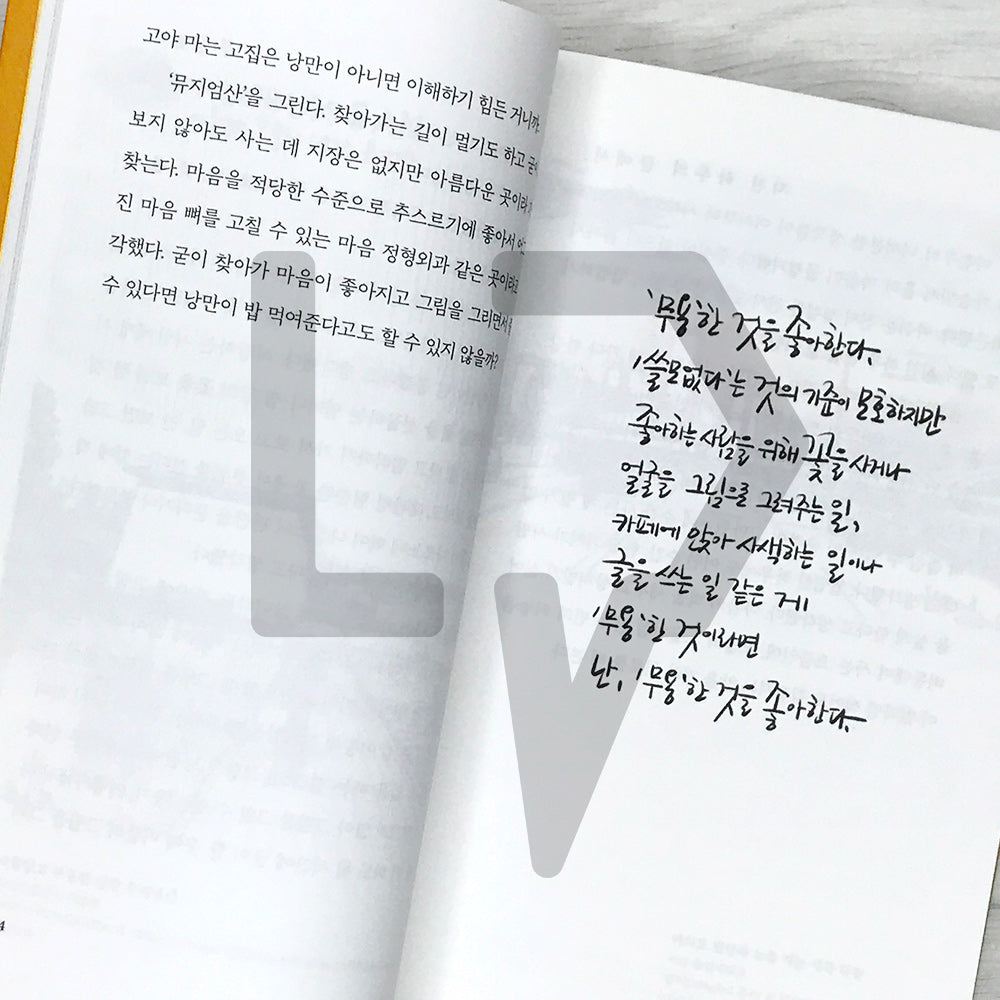 고야 마는 고집은 낭만이 아니면 이해하기 힘든 거니까.
'뮤지엄산'을 그린다. 찾아가는 길이 멀기도 하고 굳이
보지 않아도 사는 데 지장은 없지만 아름다운 곳이라
찾는다. 마음을 적당한 수준으로 추스르기에 좋아서
진 마음 뼈를 고칠 수 있는 마음 정형외과 같은 곳이라고
각했다. 굳이 찾아가 마음이 좋아지고 그림을 그리면서
수 있다면 낭만이 밥 먹여준다고도 할 수 있지 않을까?
4
'무용'한 것을 좋아한다.
'쓸모없다'는 것의 기준이 모호하지만
좋아하는 사람을 위해 꽃을 사거나
얼굴을 그림으로 그려주는 일,
카페에 앉아 사색하는 일이나
글을 쓰는 일 같은 게
'무용'한 것이라면
난, '무용'한 것을 좋아한다.